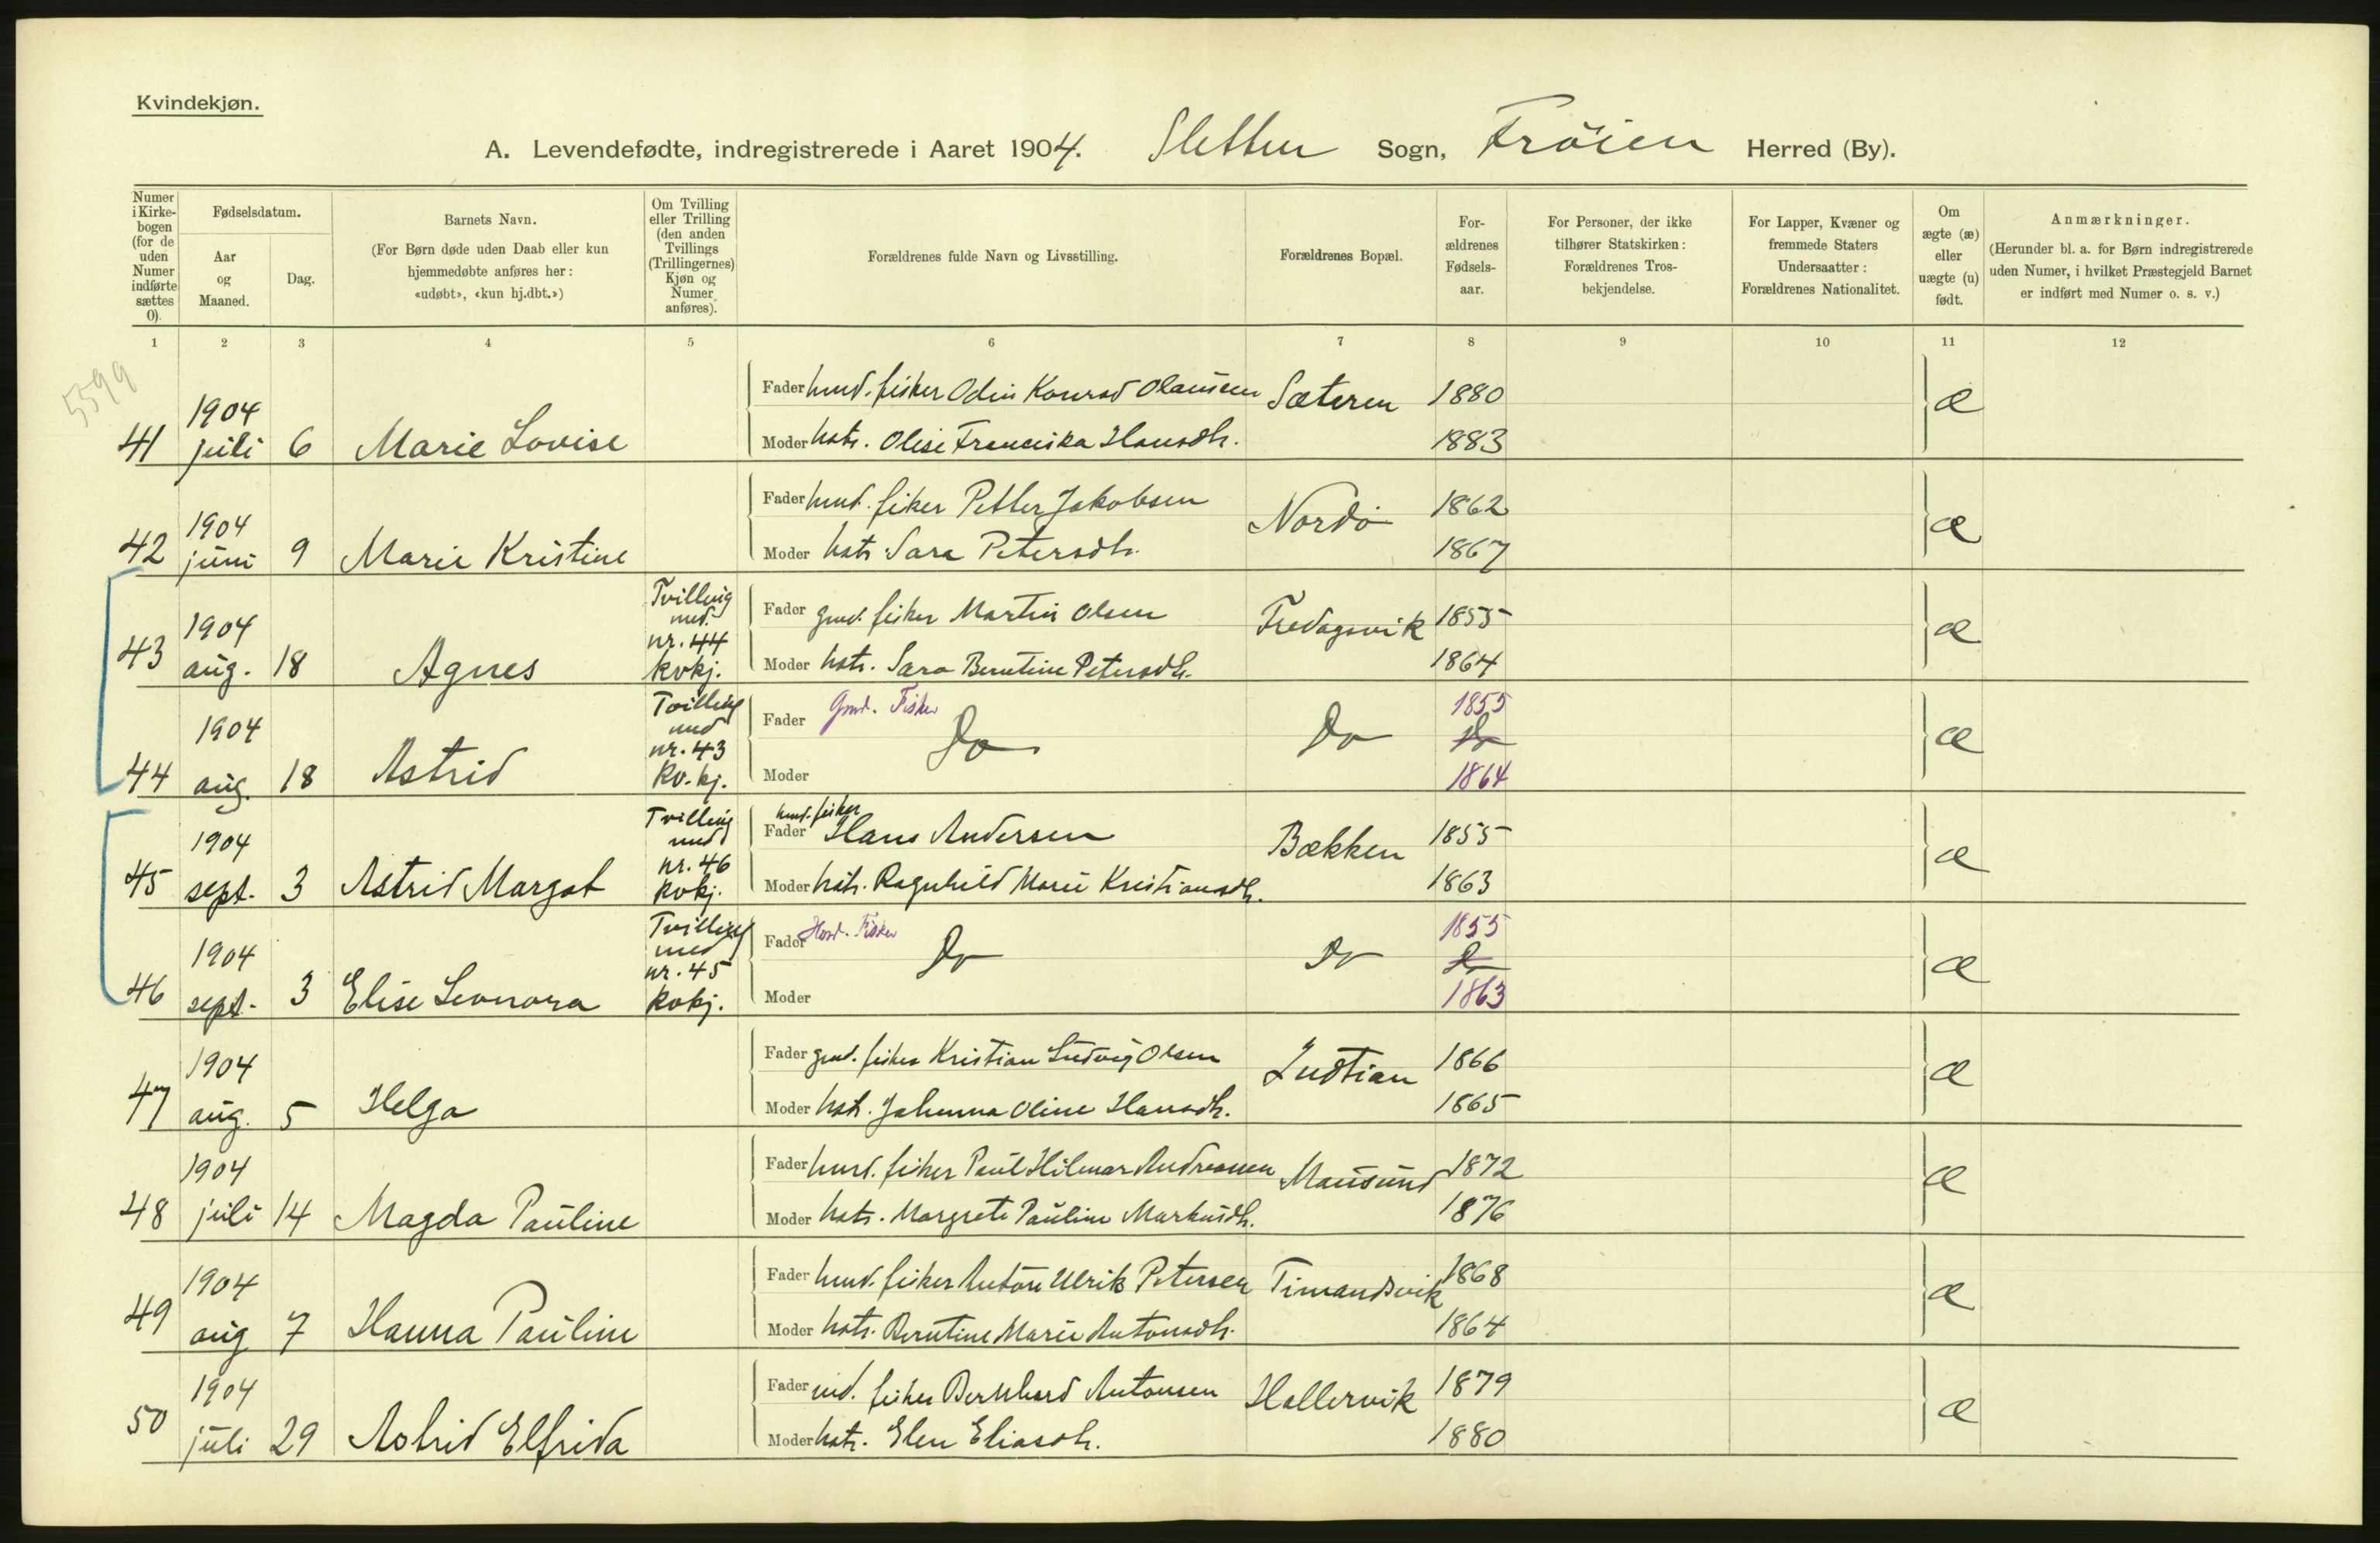 Kvindekjøn.
A. Levendefødte, indregistrerede i Aaret 1904. Sletten Sogn, Frøien Herred (By).
Numer i Kirkebogen (for de uden Numer indførte sættes 0).
Fødselsdatum.
Aar og Maaned.
Dag.
Barnets Navn.
(For Børn døde uden Daab eller kun hjemmedøbte anføres her: «udøbt», «kun hj.dbt.»)
Om Tvilling eller Trilling (den anden Tvillings (Trillingernes) Kjøn og Numer anføres).
Forældrenes fulde Navn og Livsstilling.
Forældrenes Bopæl.
Forældrenes Fødselsaar.
For Personer, der ikke tilhører Statskirken: Forældrenes Trosbekjendelse.
For Lapper, Kvæner og fremmede Staters Undersaatter: Forældrenes Nationalitet.
Om ægte (æ) eller uægte (u) født.
Anmærkninger.
(Herunder bl. a. for Børn indregistrerede uden Numer, i hvilket Præstegjeld Barnet er indført med Numer o. s. v.)
1 2 3 4 5 6 7 8 9 10 11 12
5599
41 1904 juli 6 Marie Lovise Fader husd. fisker Odin Konrad Olausen Sæteren 1880 æ
Moder hstr. Olise Franciska Hansdtr. 1883
42 1904 juni 9 Marie Kristine Fader husd. fisker Petter Jakobsen Nordø 1862 æ
Moder hstr. Sara Petersdtr. 1867
43 1904 aug. 18 Agnes Tvilling med nr. 44 kvkj. Fader grd. fisker Martin Olsen Fredagsvik 1855 æ
Moder hstr. Sara Berntine Petersdtr. 1864
44 1904 aug. 18 Astrid Tvilling med nr. 43 kv.kj. Fader Gmd. Fisker Do Do 1855 Do æ
Moder 1864
45 1904 sept. 3 Astrid Margot Tvilling med nr. 46 kvkj. Fader husd. fisker Hans Andersen Bækken 1855 æ
Moder hstr. Ragnhild Marie Kristiansdtr. 1863
46 1904 sept. 3 Elise Leonora Tvilling med nr. 45 kvkj. Fader Husd. Fisker Do Do 1855 Do æ
Moder 1863
47 1904 aug. 5 Helga Fader grd. fisker Kristian Ludvig Olsen Indtian 1866 æ
Moder hstr. Johanna Oline Hansdtr. 1865
48 1904 juli 14 Magda Pauline Fader husd. fisker Paul Hilmar Andreassen Mausund 1872 æ
Moder hstr. Margrete Pauline Markusdtr. 1876
49 1904 aug 7 Hanna Pauline Fader husd. fisker Anton Ulrik Petersen Timandsvik 1868 æ
Moder hstr. Berntine Marie Antonsdtr. 1864
50 1904 juli 29 Astrid Elfrida Fader ind. fisker Bernhard Antonsen Hallervik 1879 æ
Moder hstr. Elen Eliasdtr. 1880